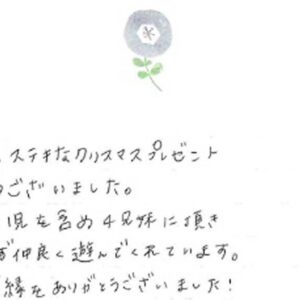 ステキなクリスマスプレゼント
ございました。
児を含め4兄妹に頂き
仲良く遊んでくれています。
縁をありがとうございました!